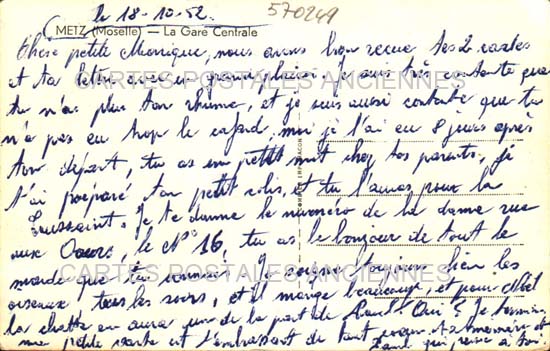 le 18-10-52
570249
METZ (Moselle) — La Gare Centrale
Chère petite Monique, nous avons bien recue tes 2 cartes
et ta lettre avec un grand plaisir. Je suis très contente que
CARTES POSTALES ANCIENNES
tu n'as plus ton rhume, et je suis aussi contente que tu
n'a pas eu trop le cafard, moi je l'ai eu 8 jours après
ton départ, tu as un petit mot chez tes parents, je
t'ai préparé ton petit colis, et tu l'auras pour la
Toussaint. Je te donne le numéro de la dame rue
aux Ours, le N° 16, tu as le bonjour de tout le
monde que tu connais. Je soigne bien les
CARTES POSTALES ANCIENNES
oiseaux tous les soirs, et il mange beaucoup, et pour
la chatte on aura un de la part de Paul. Oui? Je termine
ma petite carte en t'embrassant de tout coeur
Paul qui pense à toi.